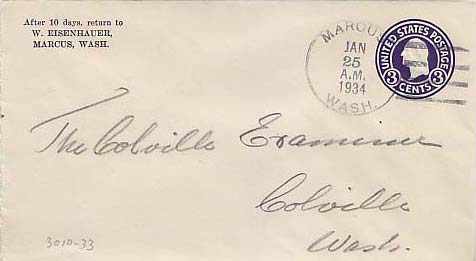 After 10 days, return to
W. EISENHAUER,
MARCUS, WASH.
MARCUS
JAN
25
A.M.
1934
WASH.
UNITED STATES POSTAGE
3 CENTS 3
The Colville Examiner
Colville
Wash.
3010-33